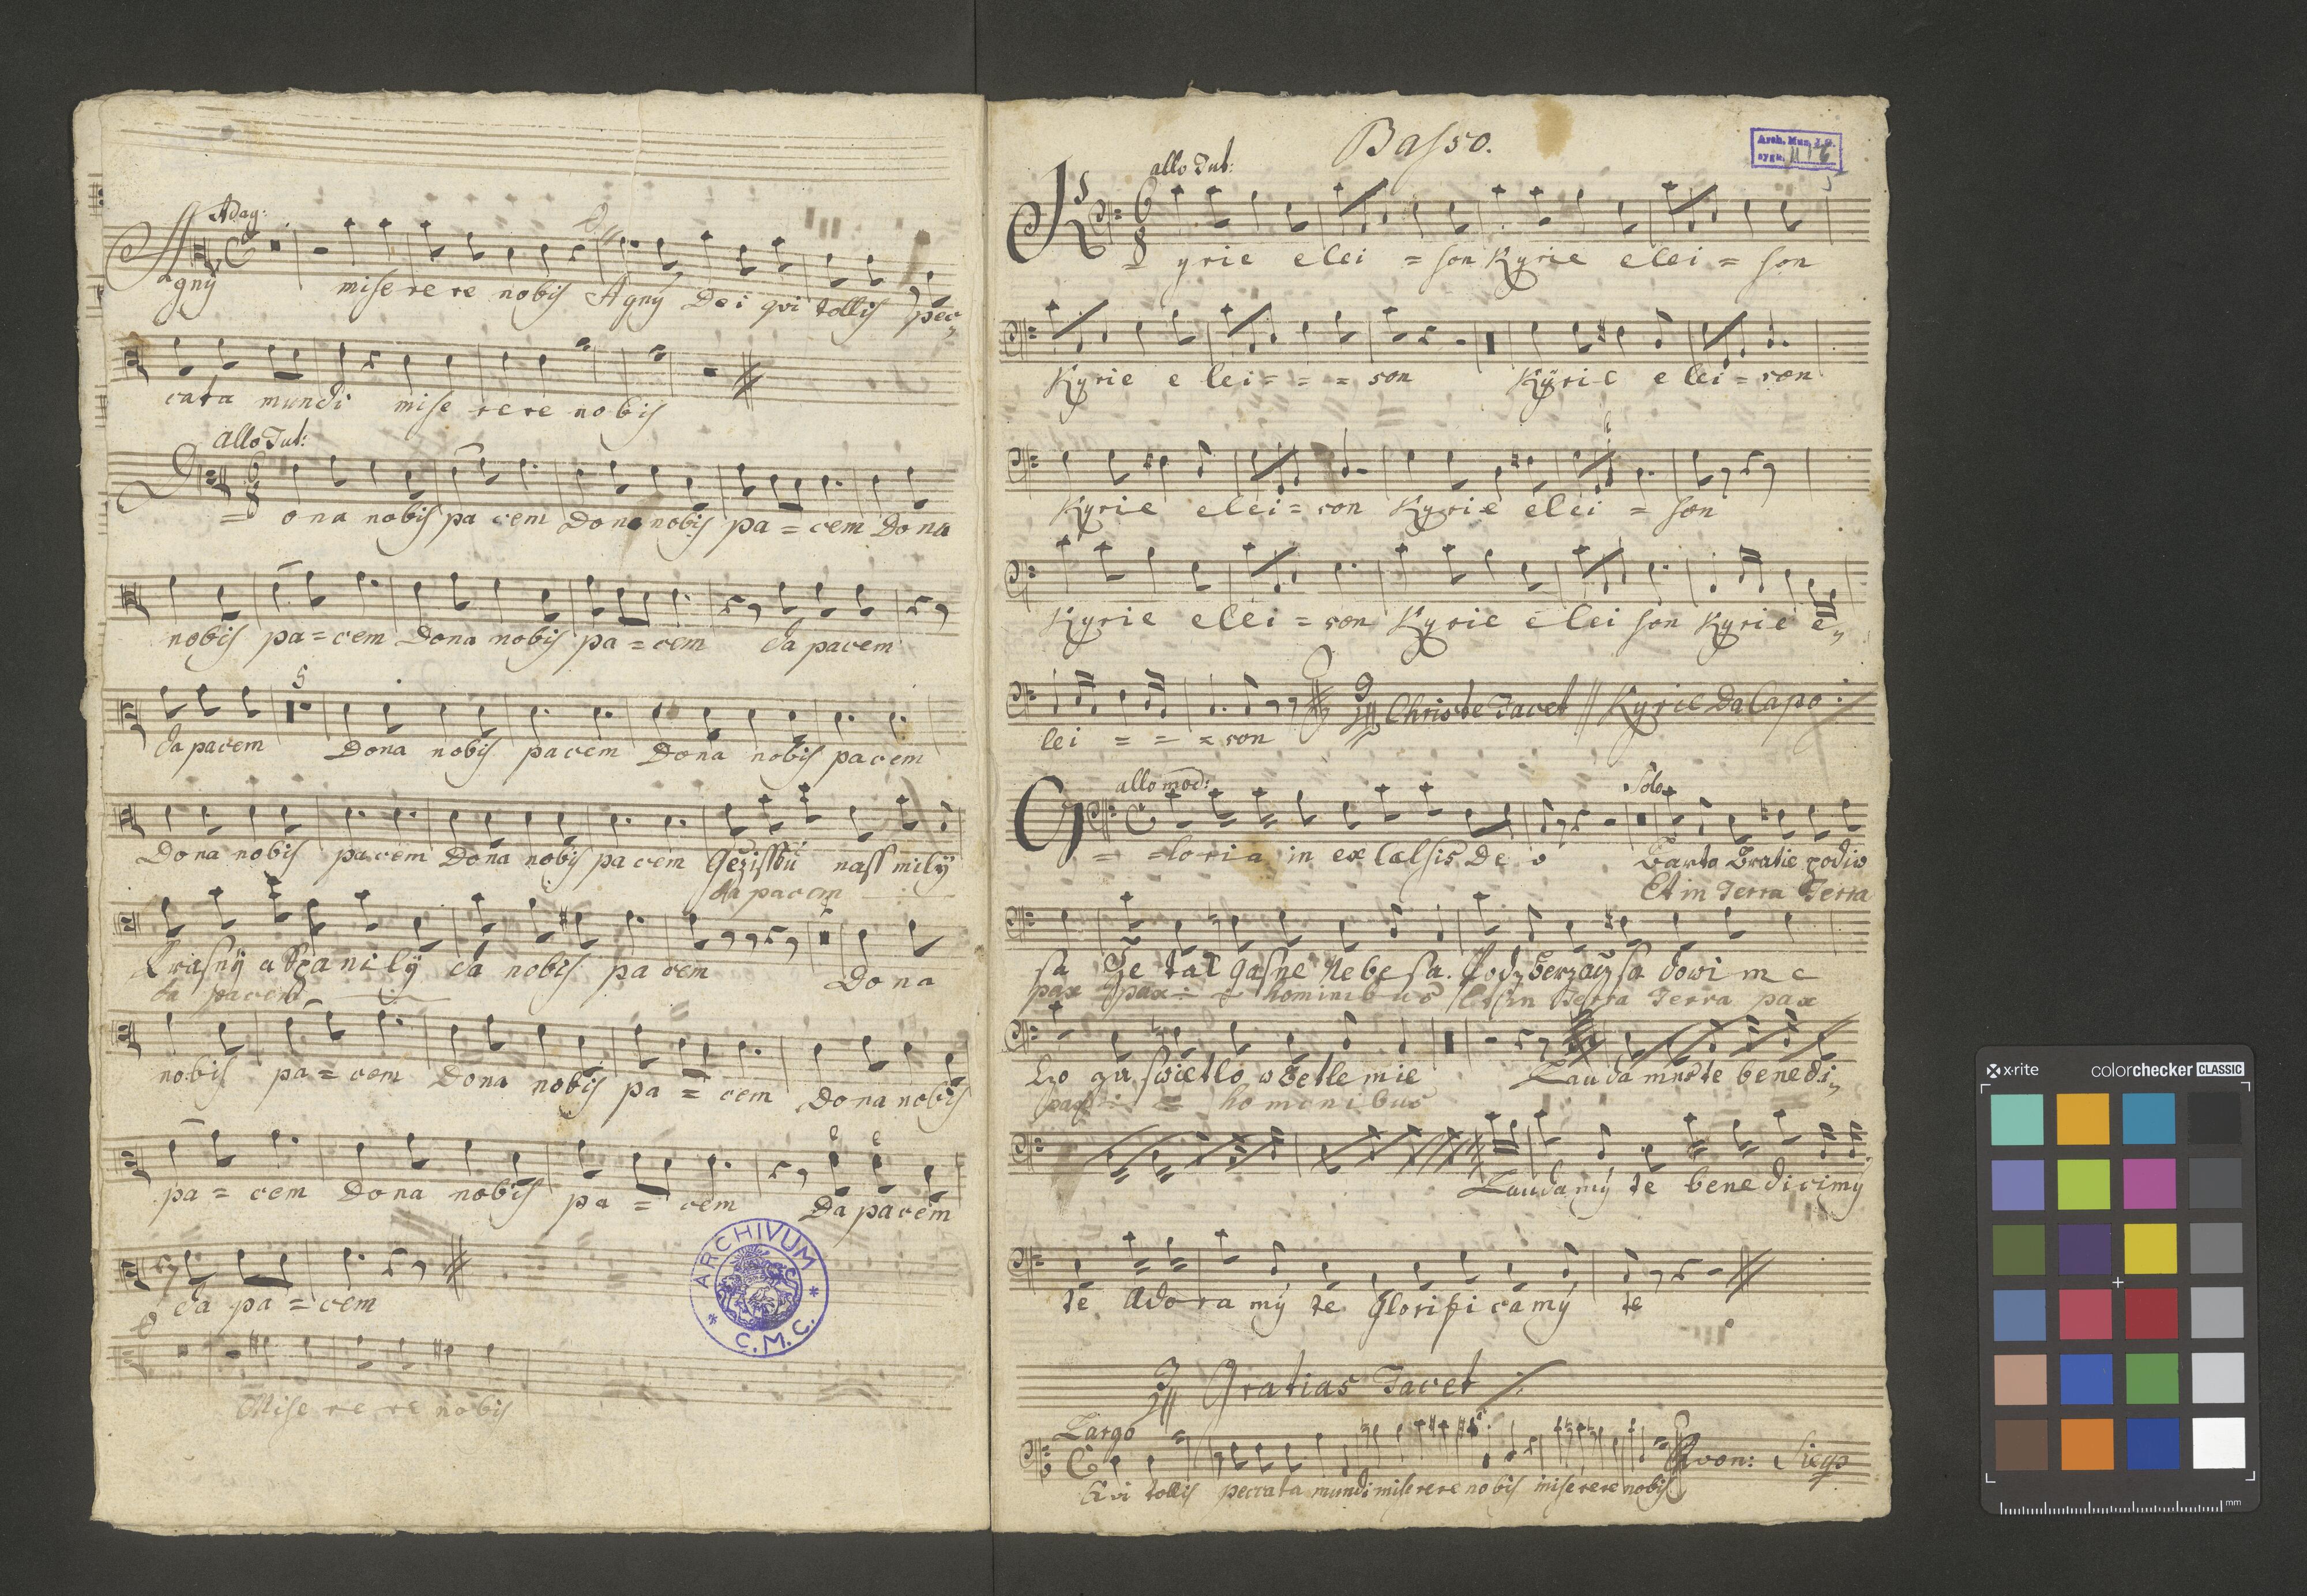 Adag:
Agny miserere nobis Agny Dei qvi tollis pec,,
cata mundi miserere nobis
allo Tut:
D = ona nobis pacem Dona nobis pa = cem Dona
nobis pa = cem Dona nobis pa = cem da pacem
5
da pacem Dona nobis pacem Dona nobis pacem
Dona nobis pacem Dona nobis pacem Gežissku nass milý
da pacem
Krasný a Spanilý da nobis pacem Dona
da pacem
nobis pa = cem Dona nobis pa = cem Dona nobis
pa = cem Dona nobis pa = cem Da pacem
da pa = cem
Miserere nobis
ARCHIVUM
C.M.C.
Basso.
Arch. Mus.
sygn.
allo Tut:
K = yrie elei = son Kyrie elei = son
Kyrie e lei = = = son Kÿrie elei = son
Kyrie elei = son Kyrie elei = son
Kyrie elei = son Kyrie elei son Kyrie e,,
lei = = = son Christe Tacet // Kyrie Da Capo
allo mod: Solo
G = = loria in excelsis Deo Barto Bratie podiw
Et in Terra Terra
sa Že tak gasne Nebe sa.
pax pax hominibus Et in Terra Terra pax
swietlo w Betlemie Laudamus te benedi,,
pax = hominibus
Laudamý te benedicimý
te Adoramý te Glorificamý te
Gratias Tacet
Largo
Qvi tollis peccata mundi miserere nobis miserere nobis
xrite colorchecker CLASSIC
mm